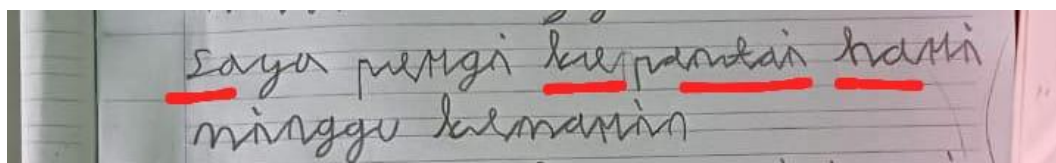 saya pergi kepantai hari
minggu kemarin